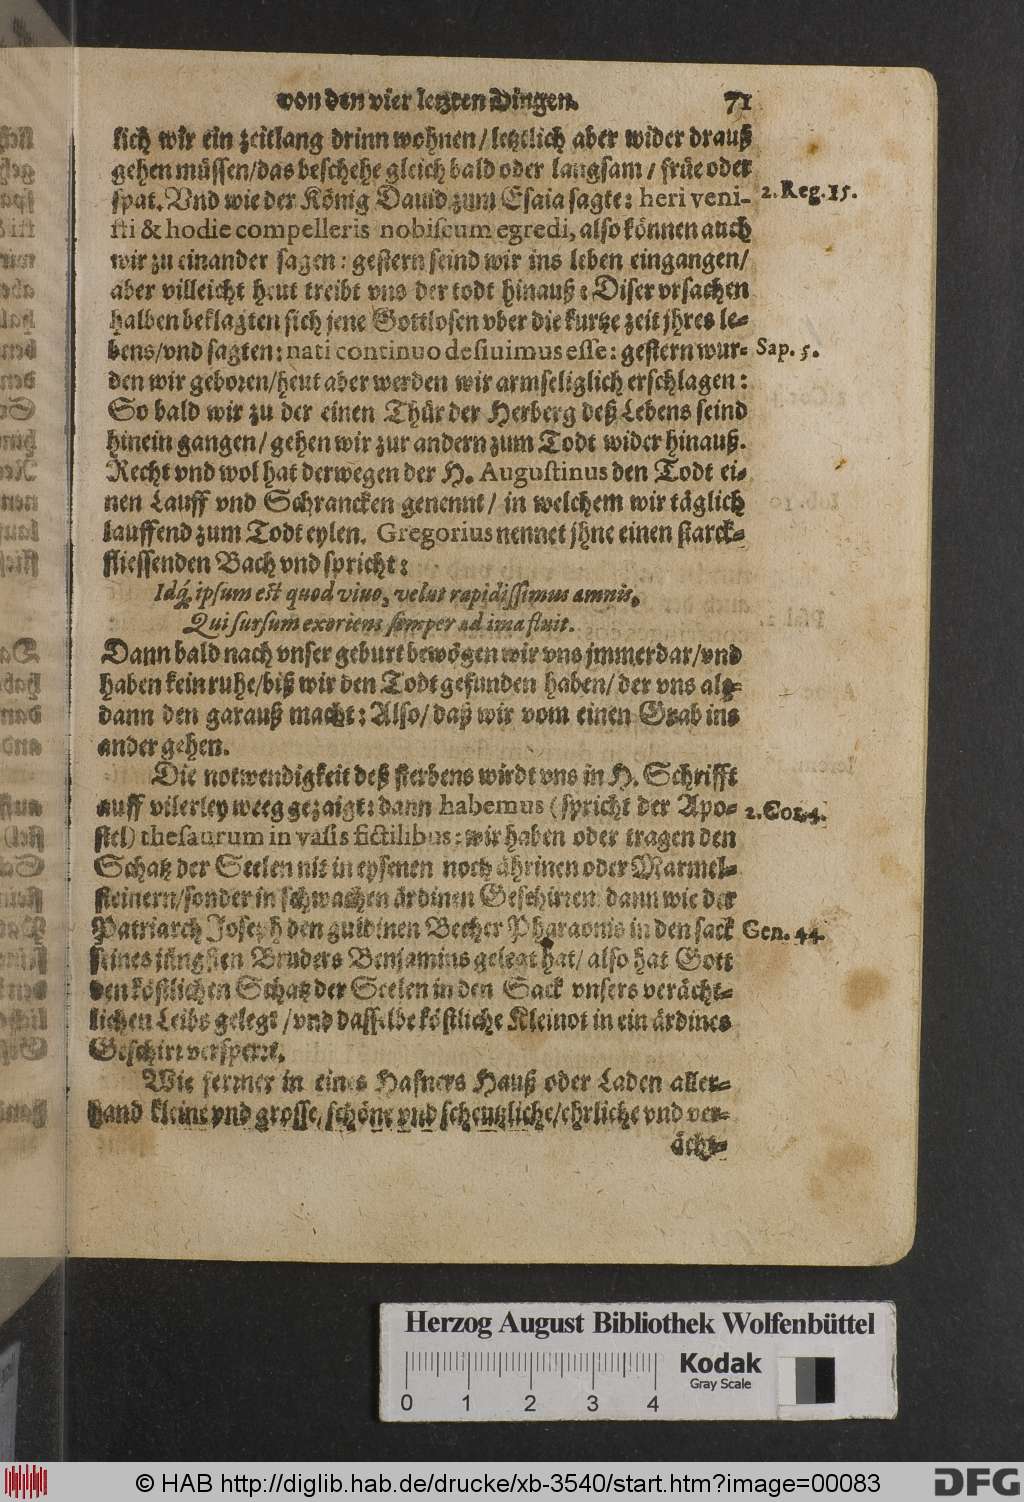 von den vier letzten Dingen. 71
lich wir ein zeitlang drinn wohnen/letztlich aber wider drauß
gehen müssen/das beschehe gleich bald oder langsam/ früe oder
spat. Vnd wie der König Dauid zum Esaia sagte: heri veni- 2. Reg. 15.
sti & hodie compelleris nobiscum egredi, also können auch
wir zu einander sagen: gestern seind wir ins leben eingangen/
aber villeicht heut treibt vns der todt hinauß: Diser vrsachen
halben beklagten sich jene Gottlosen vber die kurtze zeit jhres le-
bens/vnd sagten: nati continuo desiuimus esse: gestern wur- Sap. 5.
den wir geboren/heut aber werden wir armseliglich erschlagen:
So bald wir zu der einen Thür der Herberg deß Lebens seind
hinein gangen/ gehen wir zur andern zum Todt wider hinauß.
Recht vnd wol hat derwegen der H. Augustinus den Todt ei-
nen Lauff vnd Schrancken genennt/ in welchem wir täglich
lauffend zum Todt eylen. Gregorius nennet jhne einen starck-
fliessenden Bach vnd spricht:
Idq́, ipsum est quod viuo, velut rapidissimus amnis,
Qui sursum exoriens semper ad ima fluit.
Dann bald nach vnser geburt bewögen wir vns jmmerdar/vnd
haben kein ruhe/biß wir den Todt gefunden haben/ der vns als-
dann den garauß macht: Also/ daß wir vom einen Grab ins
ander gehen.
Die notwendigkeit deß sterbens wirdt vns in H. Schrifft
auff vilerley weeg gezaigt: dann habemus (spricht der Apo- 2. Cor. 4.
stel) thesaurum in vasis fictilibus: wir haben oder tragen den
Schatz der Seelen nit in eysenen noch ährinen oder Marmel-
steinern/sonder in schwachen ärdinen Geschirren: dann wie der
Patriarch Joseph den guldinen Becher Pharaonis in den sack Gen. 44.
seines jüngsten Bruders Benjamins gelegt hat/ also hat Gott
den köstlichen Schatz der Seelen in den Sack vnsers verächt-
lichen Leibs gelegt /vnd dasselbe köstliche Kleinot in ein ärdines
Geschirr versperrt.
Wie ferner in eines Hafners Hauß oder Laden aller-
hand kleine vnd grosse, schöne vnd scheutzliche/ehrliche vnd ver-
ächt-
Herzog August Bibliothek Wolfenbüttel
Kodak
Gray Scale
0 1 2 3 4
© HAB http://diglib.hab.de/drucke/xb-3540/start.htm?image=00083
DFG